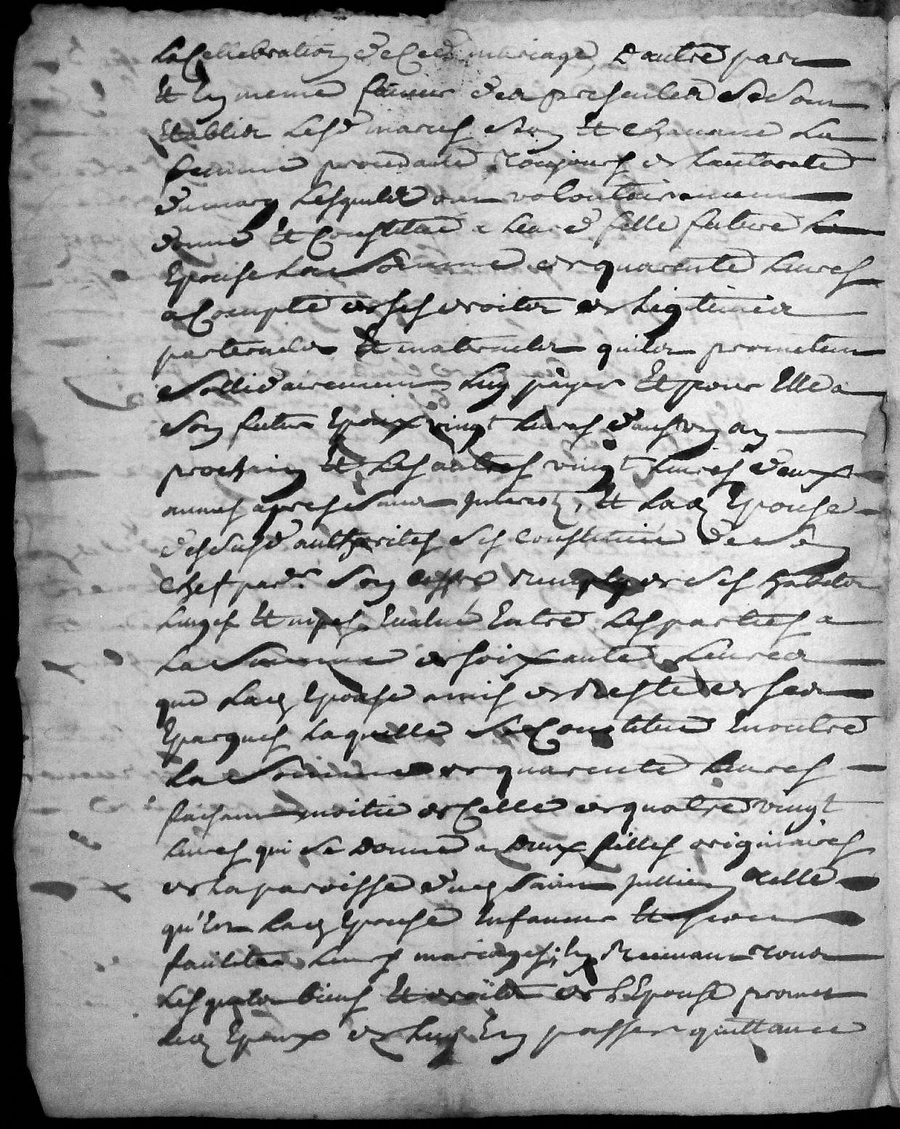 la Cellebration de Ced. mariage, D'autre part
Et En meme faveur des presentes Se Sont
Etablis Lesd. maries et La
femme procedant toujours de Lautorité
du mary Lesquels ont volontairement
donné Et Constitué a Leurd. fille future
Epouse La Somme de quarante Livres
a Compte de Ses droits de Legitimes
paternelle Et maternelle quils promettent
Sollidairement Luy payer Et pour Elle a
Son futur Epoux vingt Livres dans un an
prochain Et Les autres vingt Livres deux
annes apres Sans Interest, Et Lad. Epouse
dessusd. authorisée Ses Constituée de Son
Chef par. Son Coffre Remply de Ses habits
Linges Et nipes, Evalué Entre Les parties a
La Somme de soixante Livres
que Lad. Epouse a mis de Reste de Ses
Epargnes Laquelle Se Constitue En outre
La Somme de quarante Livres
faisant moitie de Celle de quatre vingt
Livres qui Se Donne a Deux filles originaires
de La paroisse dud. Saint Jullien Celle
qu'En Lad. Epouse Et pour
faciliter Leurs mariages, Et Recevant tous
Lesquels biens Et droits de L'Epouse promet
Led. Epoux de Luy En passer quittance